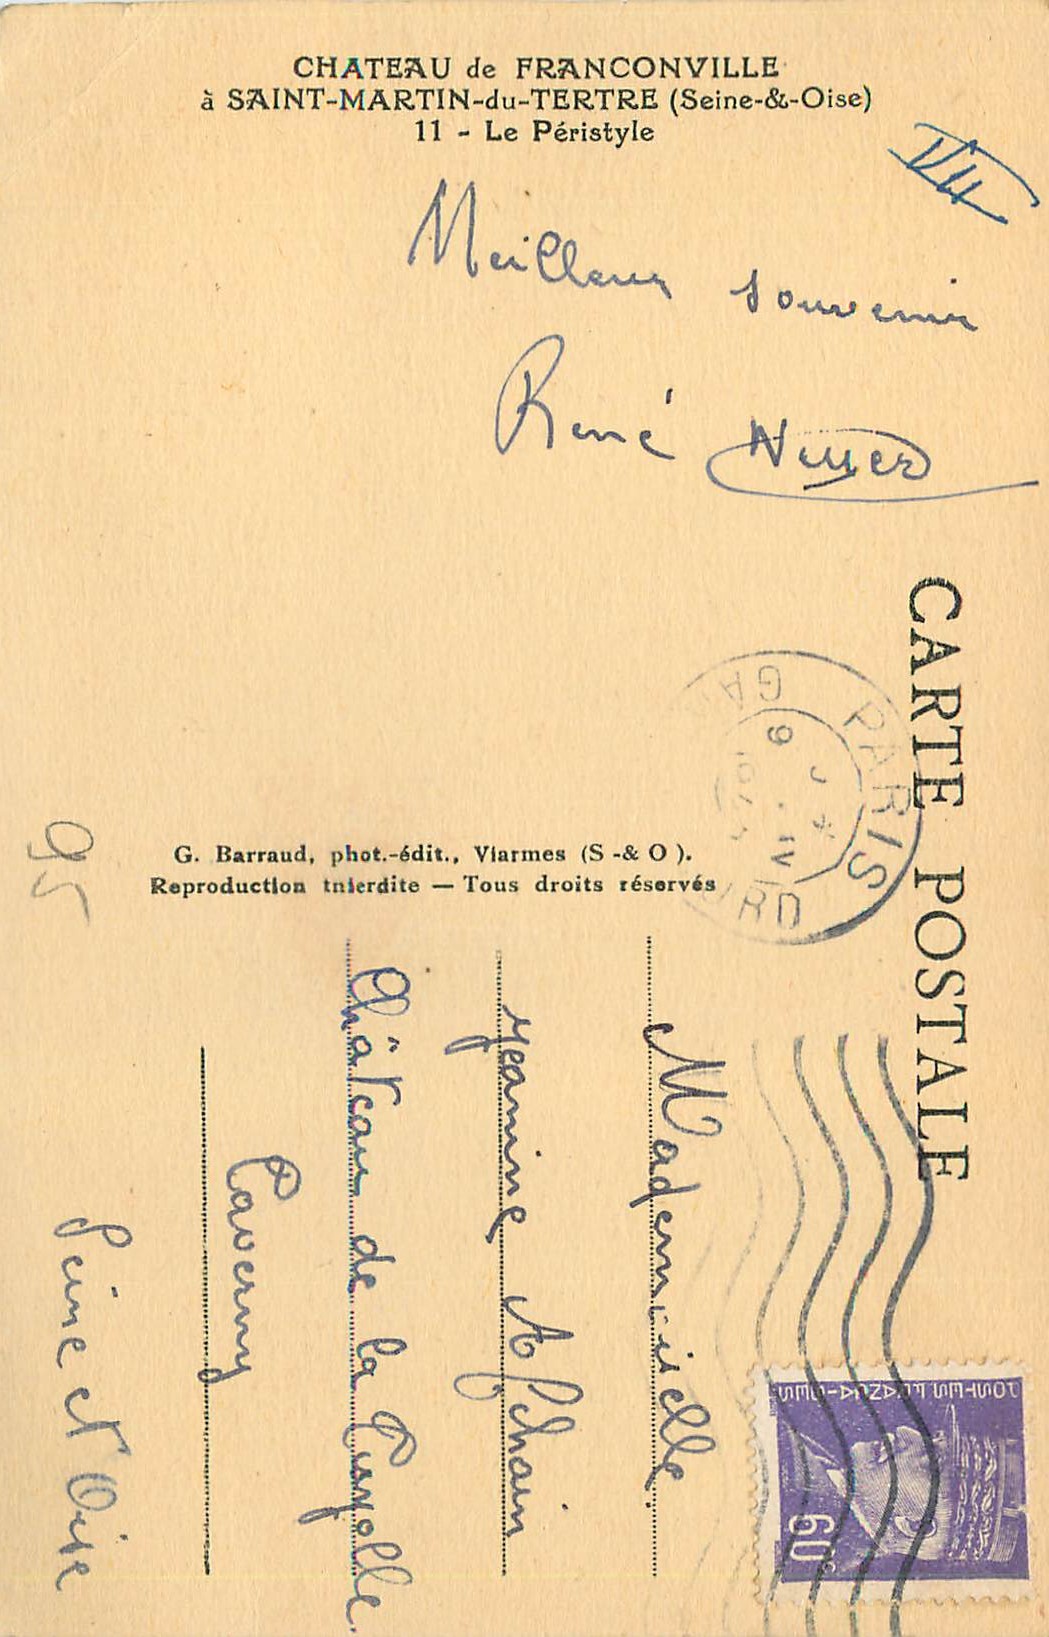 CHATEAU de FRANCONVILLE
à SAINT-MARTIN-du-TERTRE (Seine-&-Oise)
11 - Le Péristyle
VII
Meilleur souvenir
René
CARTE POSTALE
PARIS
GA
RD
G. Barraud, phot.-édit., Viarmes (S -& O ).
Reproduction interdite — Tous droits réservés
95
Mademoiselle
Jeanine Aghain
Château de la Tuyolle
Taverny
Seine et Oise
POSTES FRANÇAISES
60c